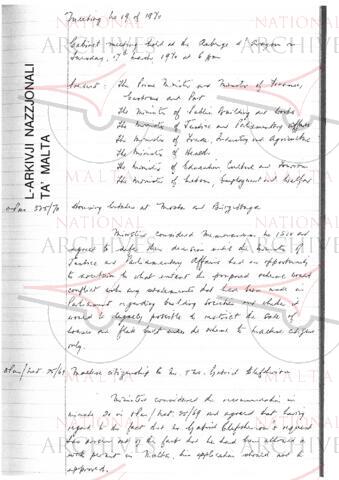 Meeting No 19 of 1970
Cabinet meeting held at the Auberge d'Aragon on
Tuesday, 17th March 1970 at 6 pm
Present: The Prime Minister and Minister of Finance,
Customs and Port
The Minister of Public Building and Works
The Minister of Justice and Parliamentary Affairs
The Minister of Trade, Industry and Agriculture
The Minister of Health
The Minister of Education Culture and Tourism
The Minister of Labour, Employment and Welfare
OPM 525/70 Housing Estates at Mosta and Birzebbuga
Ministers considered Memorandum No 1510 and
agreed to defer their decision until the Minister of
Justice and Parliamentary Affairs had an opportunity
to ascertain to what extent the proposed scheme would
conflict with any statements that had been made in
Parliament regarding building societies and whether it
would be legally possible to restrict the sale of
houses and flats built under the scheme to Maltese citizens
only.
OPM/Nat. 25/69 Maltese citizenship to Mr Gabriel
Ministers considered the recommendation in
minute 20 in OPM/Nat. 25/69 and agreed that having
regard to the fact that Mr Gabriel request
the fact that he had been allowed a
work permit in Malta, his application should not be
approved.
L-ARKIVJI NAZZJONALI
TA' MALTA
NATIONAL
ARCHIVES
MALTA